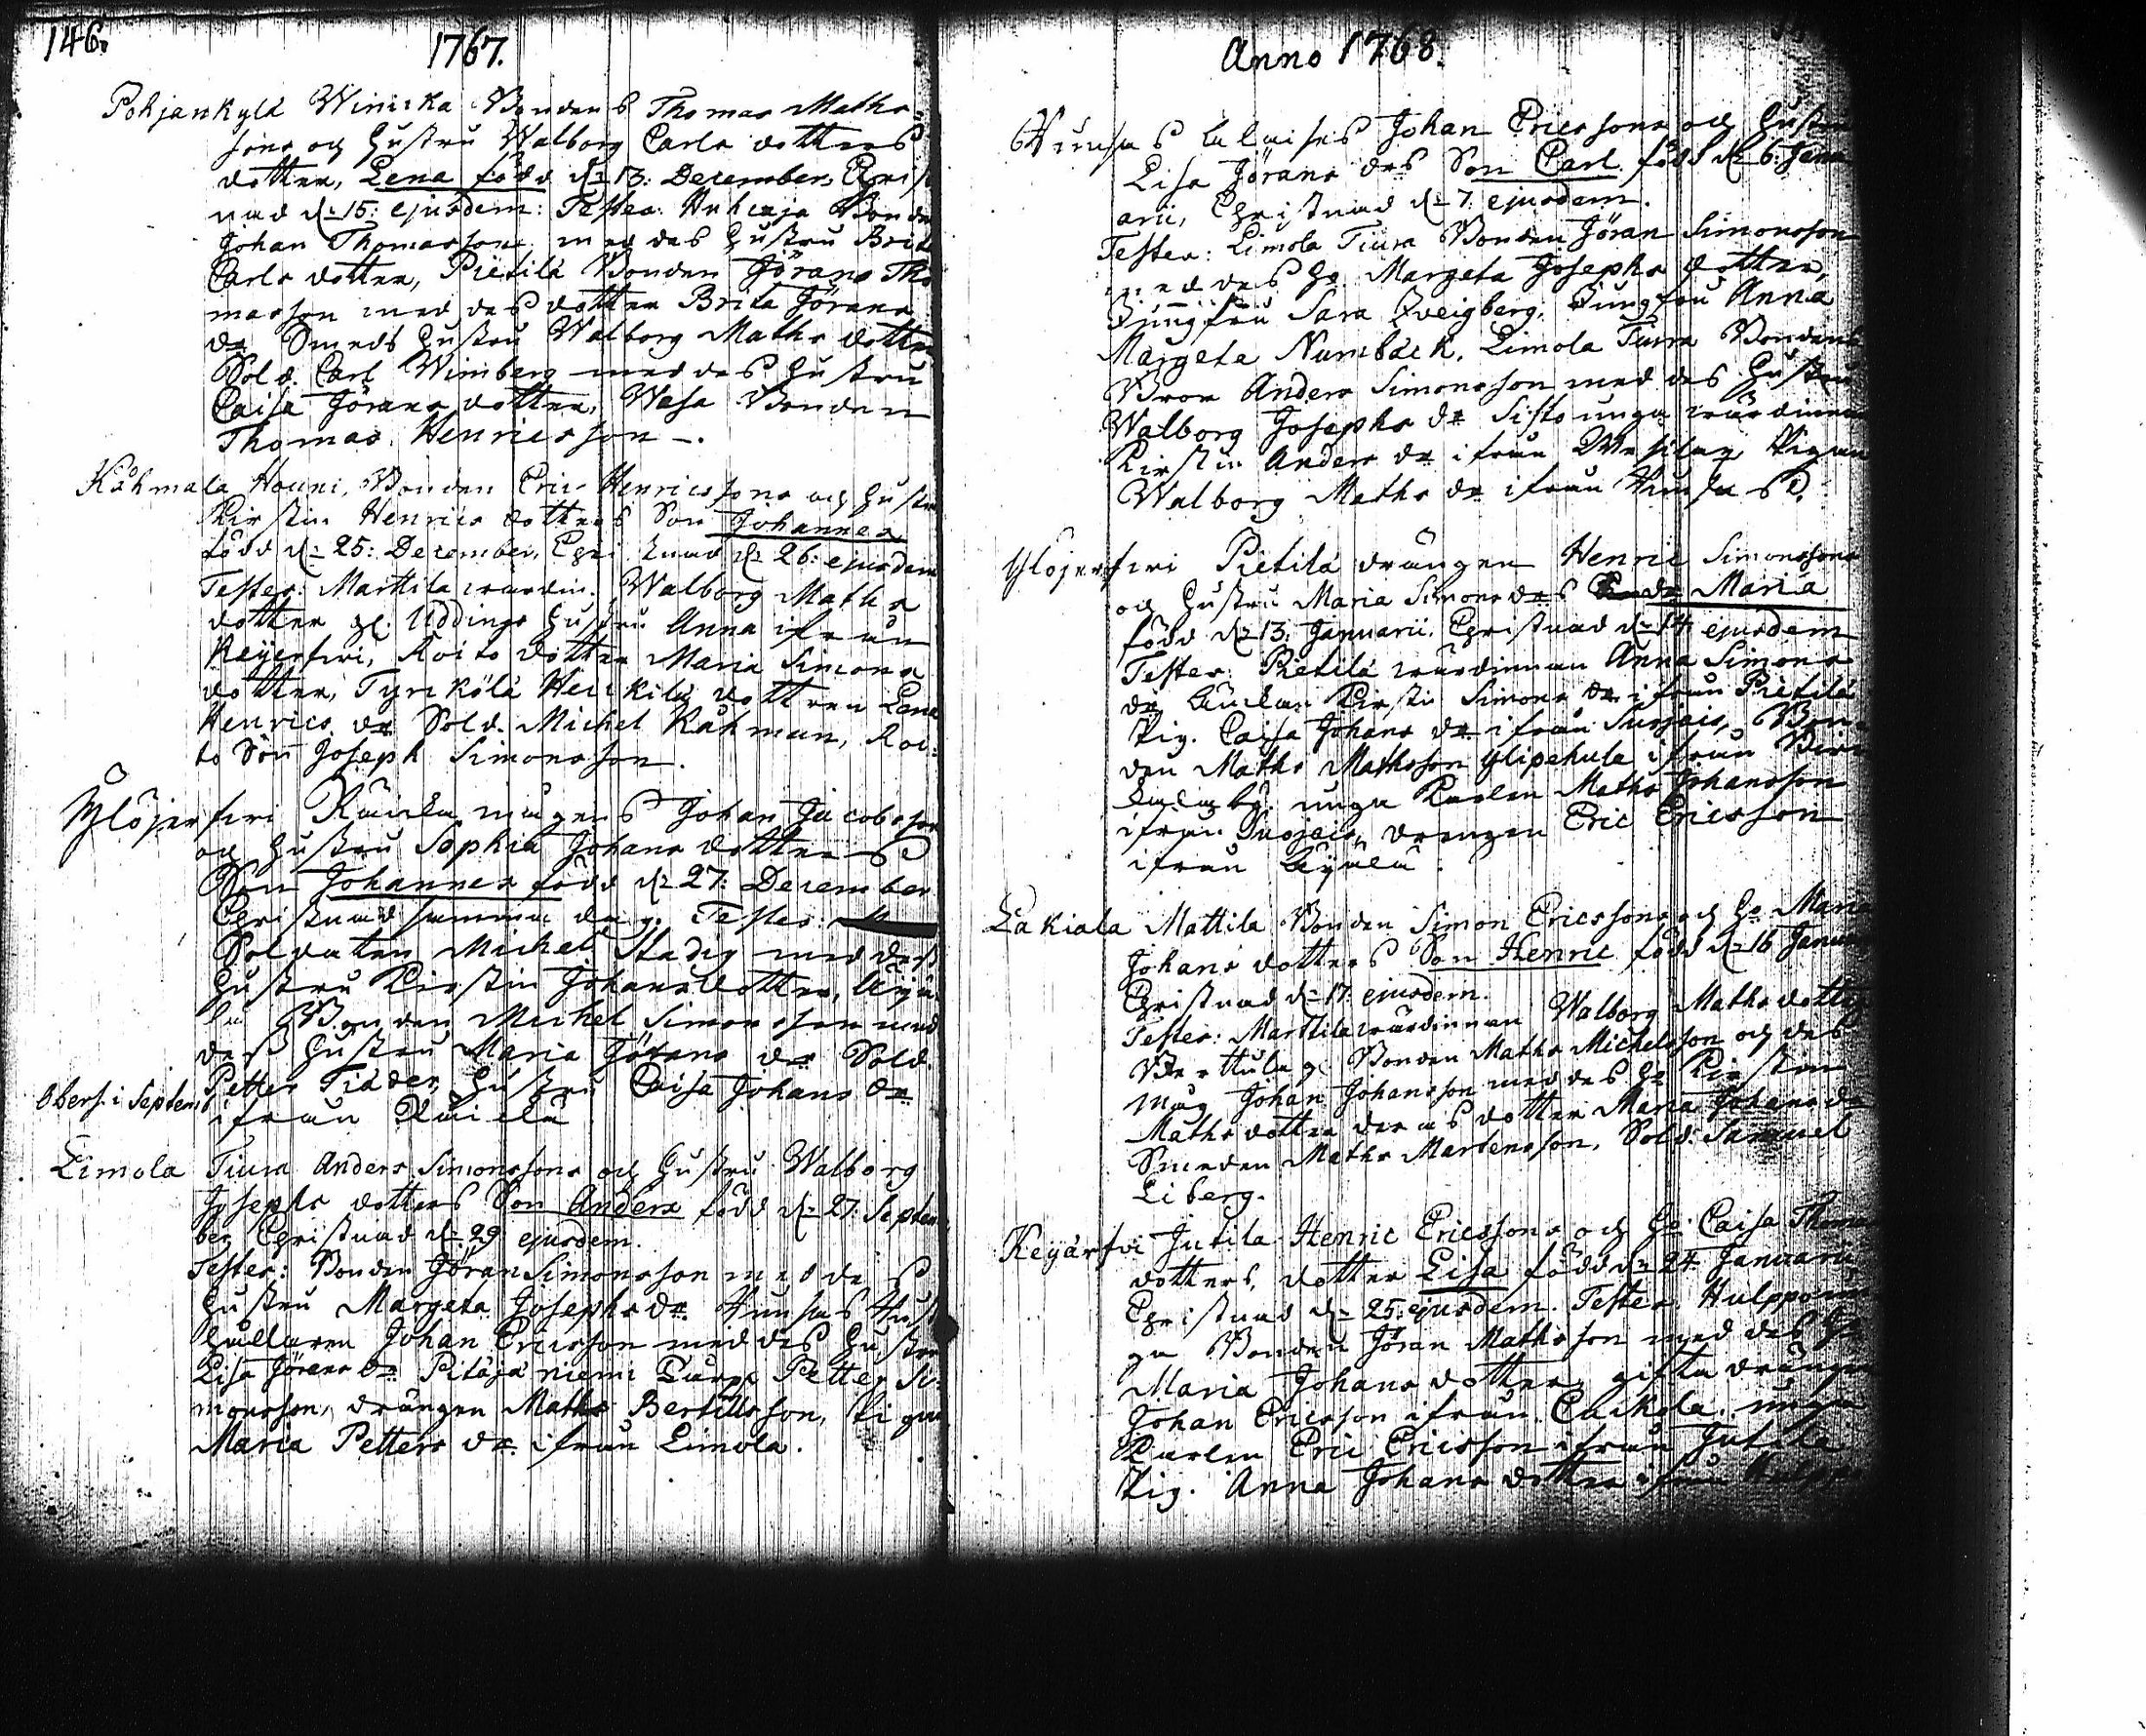 146.
1767.
Pohjankylä Winicka Bondens Thomas Maths
sons och Hustru Walborg Carls dotters
dotter, Lena född d. 13: December, Christ
nad d. 15: ejusdem: Testes: Bonden
Johan Thomasson med des Hustru Brita
Carls dotter, Pietilä Bonden Görans Tho
masson med des dotter Brita Görans
dr Smeds Hustru Walborg Maths dotter
Sold. Carl Wimberg med des Hustru
Caisa Jörans dotter, Wasa Bonden
Thomas Henricsson.
Kåhmala Houni, Bonden Eric Henricssons och Hustru
Kirstin Henrics dotters Son Johannes
född d. 25: December, Christnad d. 26: ejusdem
Testes: Marttila wärdin. Walborg Maths
dotter gl. Uddings Hustru Anna ifrån
Keyerfwi, Roito dotter Maria Simons
dotter, Tyrckölä Heickilä dottren Lena
Henrics dr Sold. Michel Kåhman, Roi:
to Son Joseph Simonsson.
Ylöjerfwi Räickä mågens Johan Jacobsson
och Hustru Sophia Johans dotters
Son Johannes född d. 27: December
Christnad samma dag. Testes:
Soldaten Michel Stadig med dess
Hustru Kirstin Johansdotter,
Bonden Michel Simonsson med
dess Hustru Maria Jörans dr Sold.
Petter Tiäder Hustru Caisa Johans dr
ifrån Räickä
Obers. i Septemb
Limola Tiura Anders Simonssons och Hustru Walborg
Josephs dotters Son Anders född d. 27: Septem
ber Christnad d. 29 ejusdem.
Testes: Bonden Jöran Simonsson med des
Hustru Margeta Josephs dr. Hunsas Hus
hållaren Johan Ericsson med des Hustru
Lisa Jörans dr Pitäjäniemi Petter Si:
monsson, drängen Maths Bertillsson, Pigan
Maria Petters dr. ifrån Limola.
Anno 1768.
Johan Ericssons och Hustru
Lisa Jörans drs Son Carl född d. 6: Janu
arii, Christnad d. 7 ejusdem.
Testes: Limola Tiura Bonden Jöran Simonsson
med des Ho Margeta Josephs dotter,
Jungfru Sara Zveigberg, Jungfru Anna
Margeta Numbäck. Limola Tiura Bondens
Bror Anders Simonsson med des Hustru
Walborg Josephs dr Sisto unga wärdinnan
Kirstin Anders dr ifrån Pigan
Walborg Maths dr ifrån Hunsas.
Ylöjerfwi Pietilä drängen Henric Simonssons
och Hustru Maria Simons drs dr Maria
född d. 13: Januarii, Christnad d. 14 ejusdem
Testes: Pietilä wärdinnan Anna Simons
dr Kirstin Simons dr ifrån Pietilä
Pig. Caisa Johans dr ifrån Suojais, Bon-
den Maths Mathsson ifrån
by. unga Karlen Maths Johansson
ifrån Suojais, drengen Eric Ericsson
ifrån
Lakiala Mattila Bonden Simon Ericssons och Ho Maria
Johans dotters Son Henric född d. 16 Januarii
Christnad d. 17: ejusdem.
Testes: Marttila wärdinnan Walborg Maths dotter
Bonden Maths Michelsson och des
Måg Johan Johansson med des Ho Kirstin
Maths dotter deras dotter Maria Johans dr
Smeden Maths Mårtensson, Sold: Samuel
Liberg.
Keyärfvi Jutila Henric Ericssons och Ho Caisa Thomas
dotters, dotter Lisa född d. 24 Januarii
Christnad d. 25: ejusdem. Testes: Hulppo
Bonden Jöran Mathsson med des Ho
Maria Johans dotter, gifta drängen
Johan Ericsson ifrån unga
Karlen Eric Ericsson ifrån Jutila
Pig. Anna Johans dotter ifrån